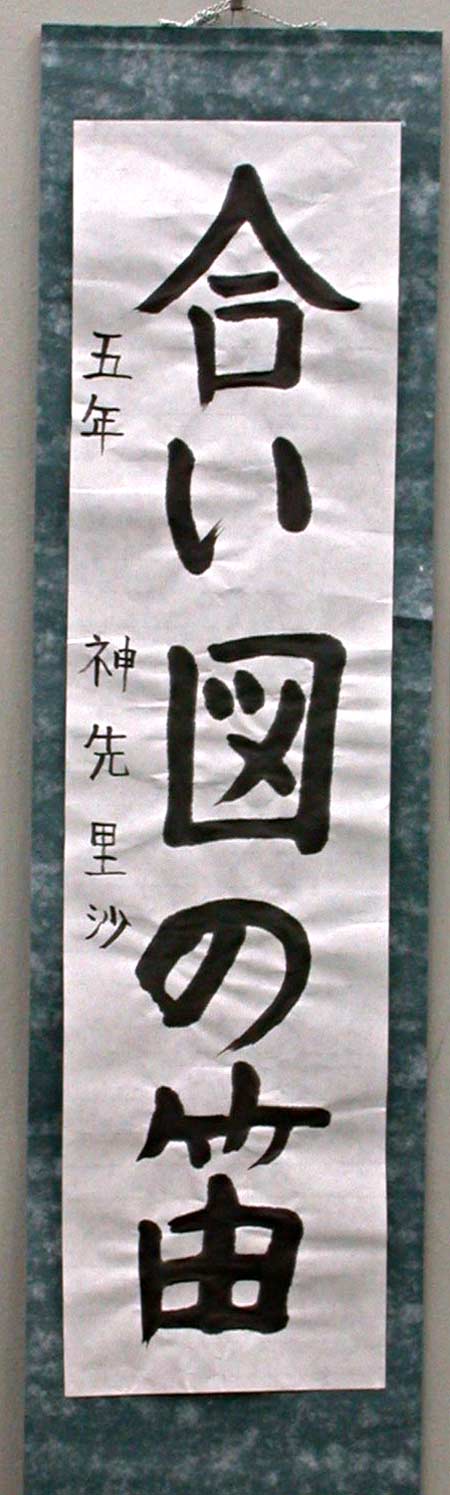 合い図の笛
五年 神先里沙